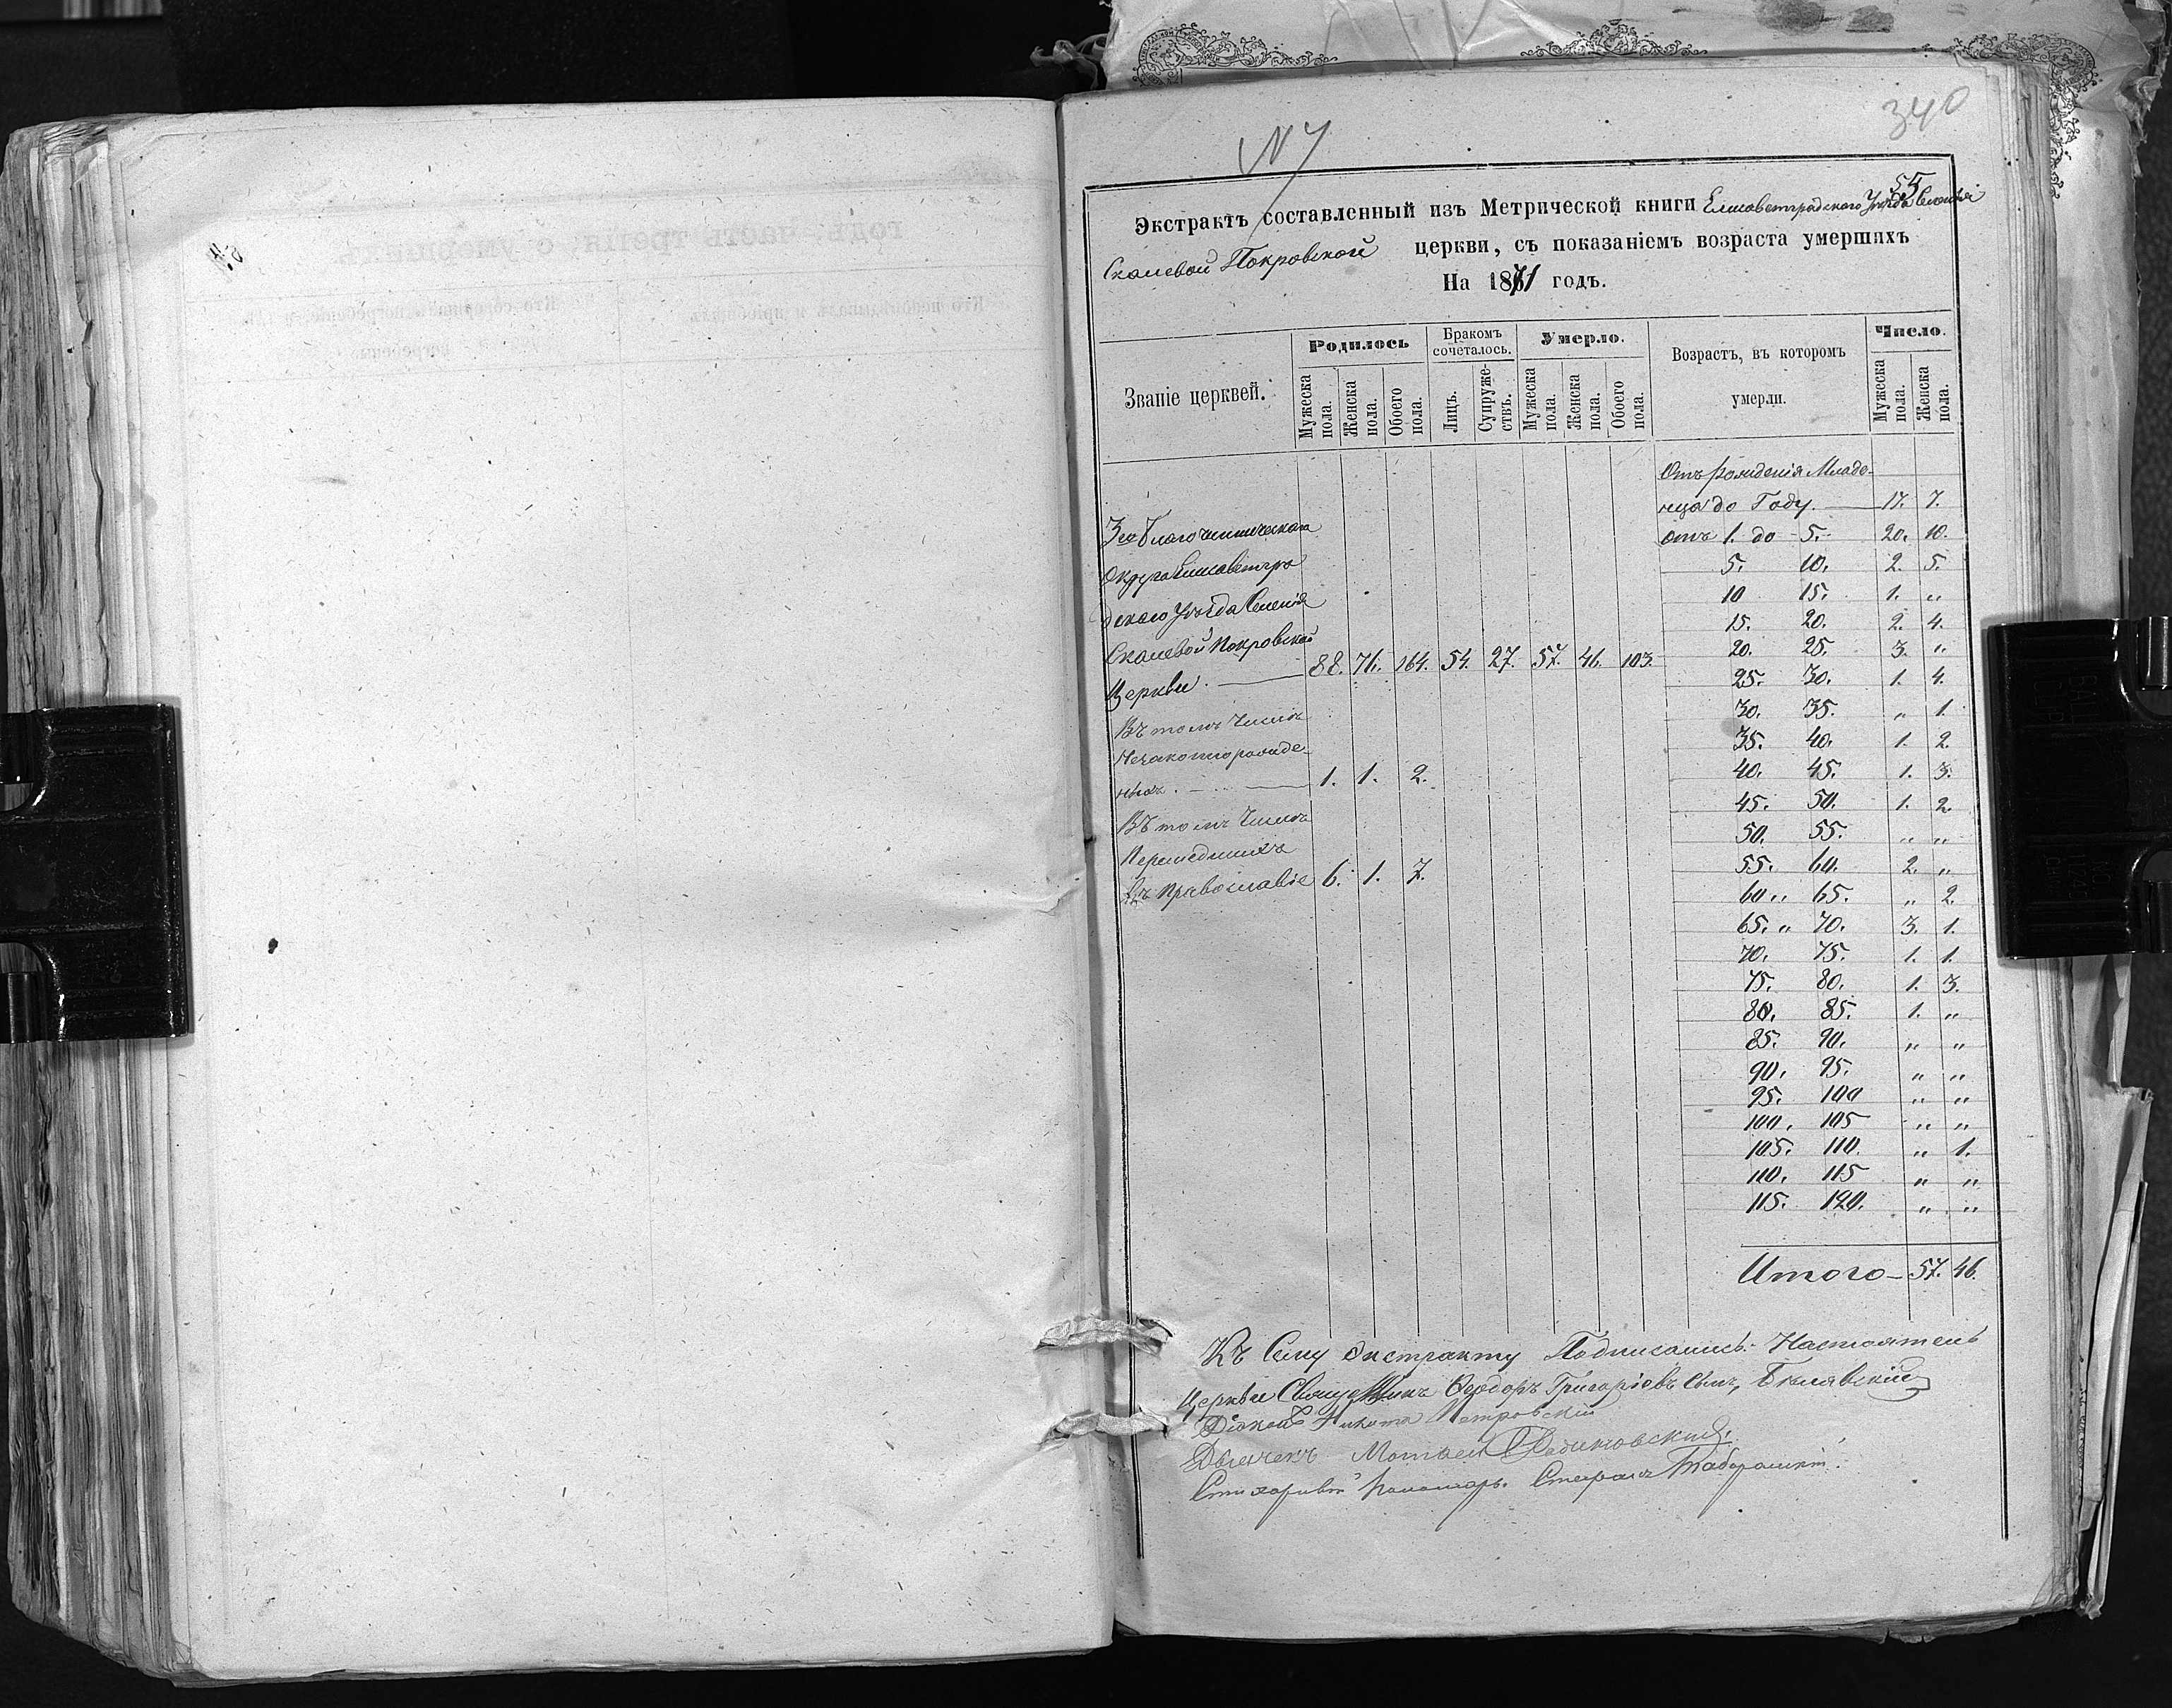 340
№ 7
55
Экстрактъ составленный изъ Метрической книги Елисаветградского Уѣзда Селенія
Скалевой Покровской церкви, съ показаніемъ возраста умершихъ
На 1871 годъ.
Званіе церквей. Родилось Бракомъ сочеталось. Умерло. Возрастъ, въ которомъ умерли. Число.
Мужеска пола. Женска пола. Обоего пола. Лицъ. Супружествъ. Мужеска пола. Женска пола. Обоего пола. Мужеска пола. Женска пола.
3го Благочинническаго
Округа Елисаветгра
дскаго Уѣзда Селенія
Скалевой Покровской
Церкви. 88. 76. 164. 54. 27. 57. 46. 103.
Въ томъ числѣ
Незаконнорожде-
нныхъ. 1. 1. 2.
Въ томъ числѣ
Перешедшихъ
въ Православіе 6. 1. 7.
Отъ рожденія Младе-
нца до Году. 17. 7.
Отъ 1. до 5. 20. 10.
5. 10. 2. 5.
10 15. 1. „
15. 20. 2. 4.
20. 25. 3. „
25. 30. 1. 4.
30. 35. „ 1.
35. 40. 1. 2.
40. 45. 1. 3.
45. 50. 1. 2.
50. 55. „ „
55. 60. 2. „
60 „ 65. „ 2.
65. „ 70. 3. 1.
70. 75. 1. 1.
75. 80. 1. 3.
80. 85. 1. „
85. 90. „ „
90. 95. „ „
95. 100 „ „
100. 105 „ „
105. 110. „ 1.
110. 115 „ „
115. 120. „ „
Итого – 57. 46.
Къ Сему Экстракту Подписались: Настоятель
Церкви Священникъ Ѳеодоръ Григоріевъ Сынъ, Бѣлявскій
Діяконъ Никита Петровскій
Дьячекъ
Стихарный Пономарь. Стефанъ